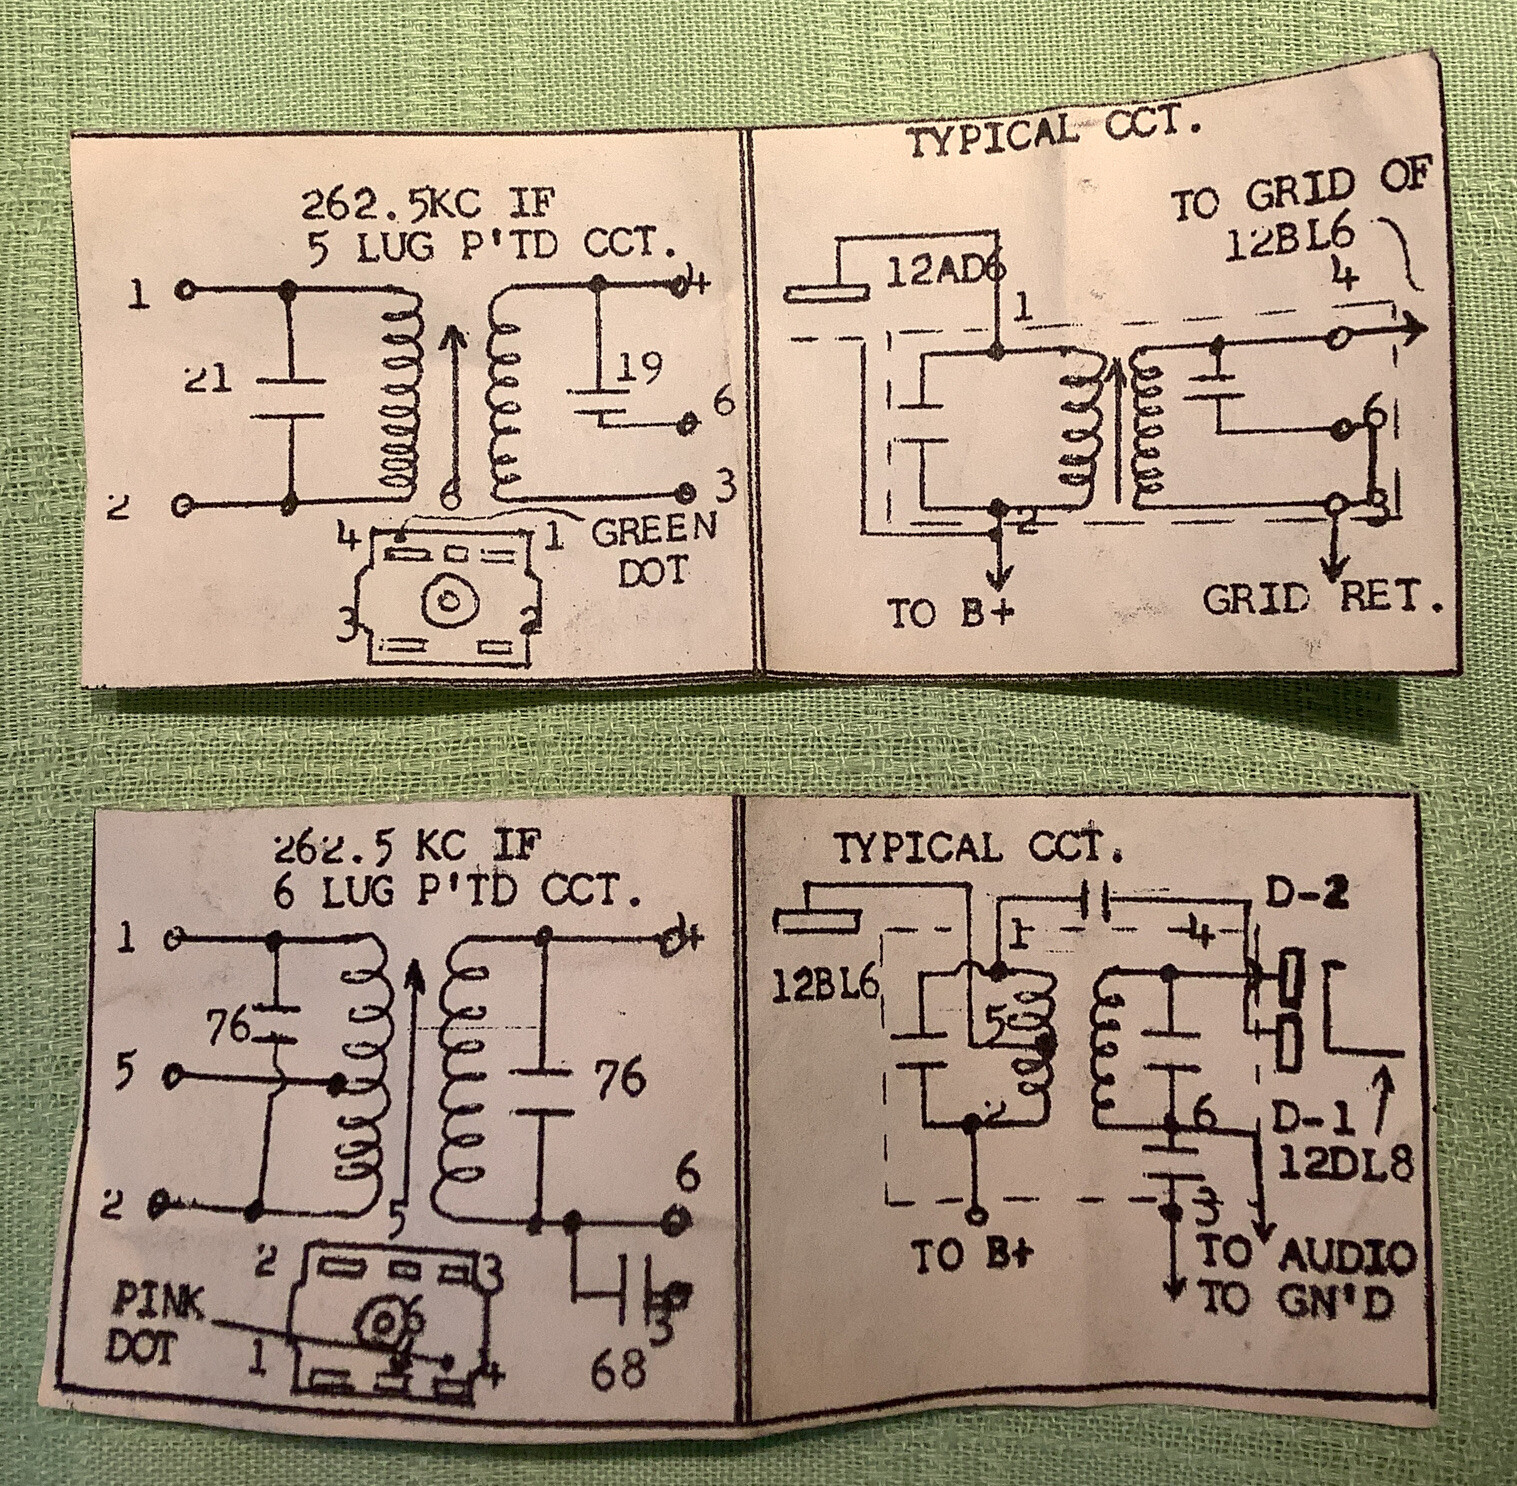 262.5KC IF
5 LUG P'TD CCT.
1
4
21
19
6
2
3
6
4
1
GREEN
DOT
3
2
TYPICAL CCT.
TO GRID OF
12BL6
12AD6
4
1
6
2
3
TO B+
GRID RET.
262.5 KC IF
6 LUG P'TD CCT.
1
4
76
5
76
2
6
5
2
3
PINK
DOT
6
1
4
3
68
TYPICAL CCT.
D-2
1
4
12BL6
5
2
6
D-1
12DL8
3
TO B+
TO AUDIO
TO GN'D